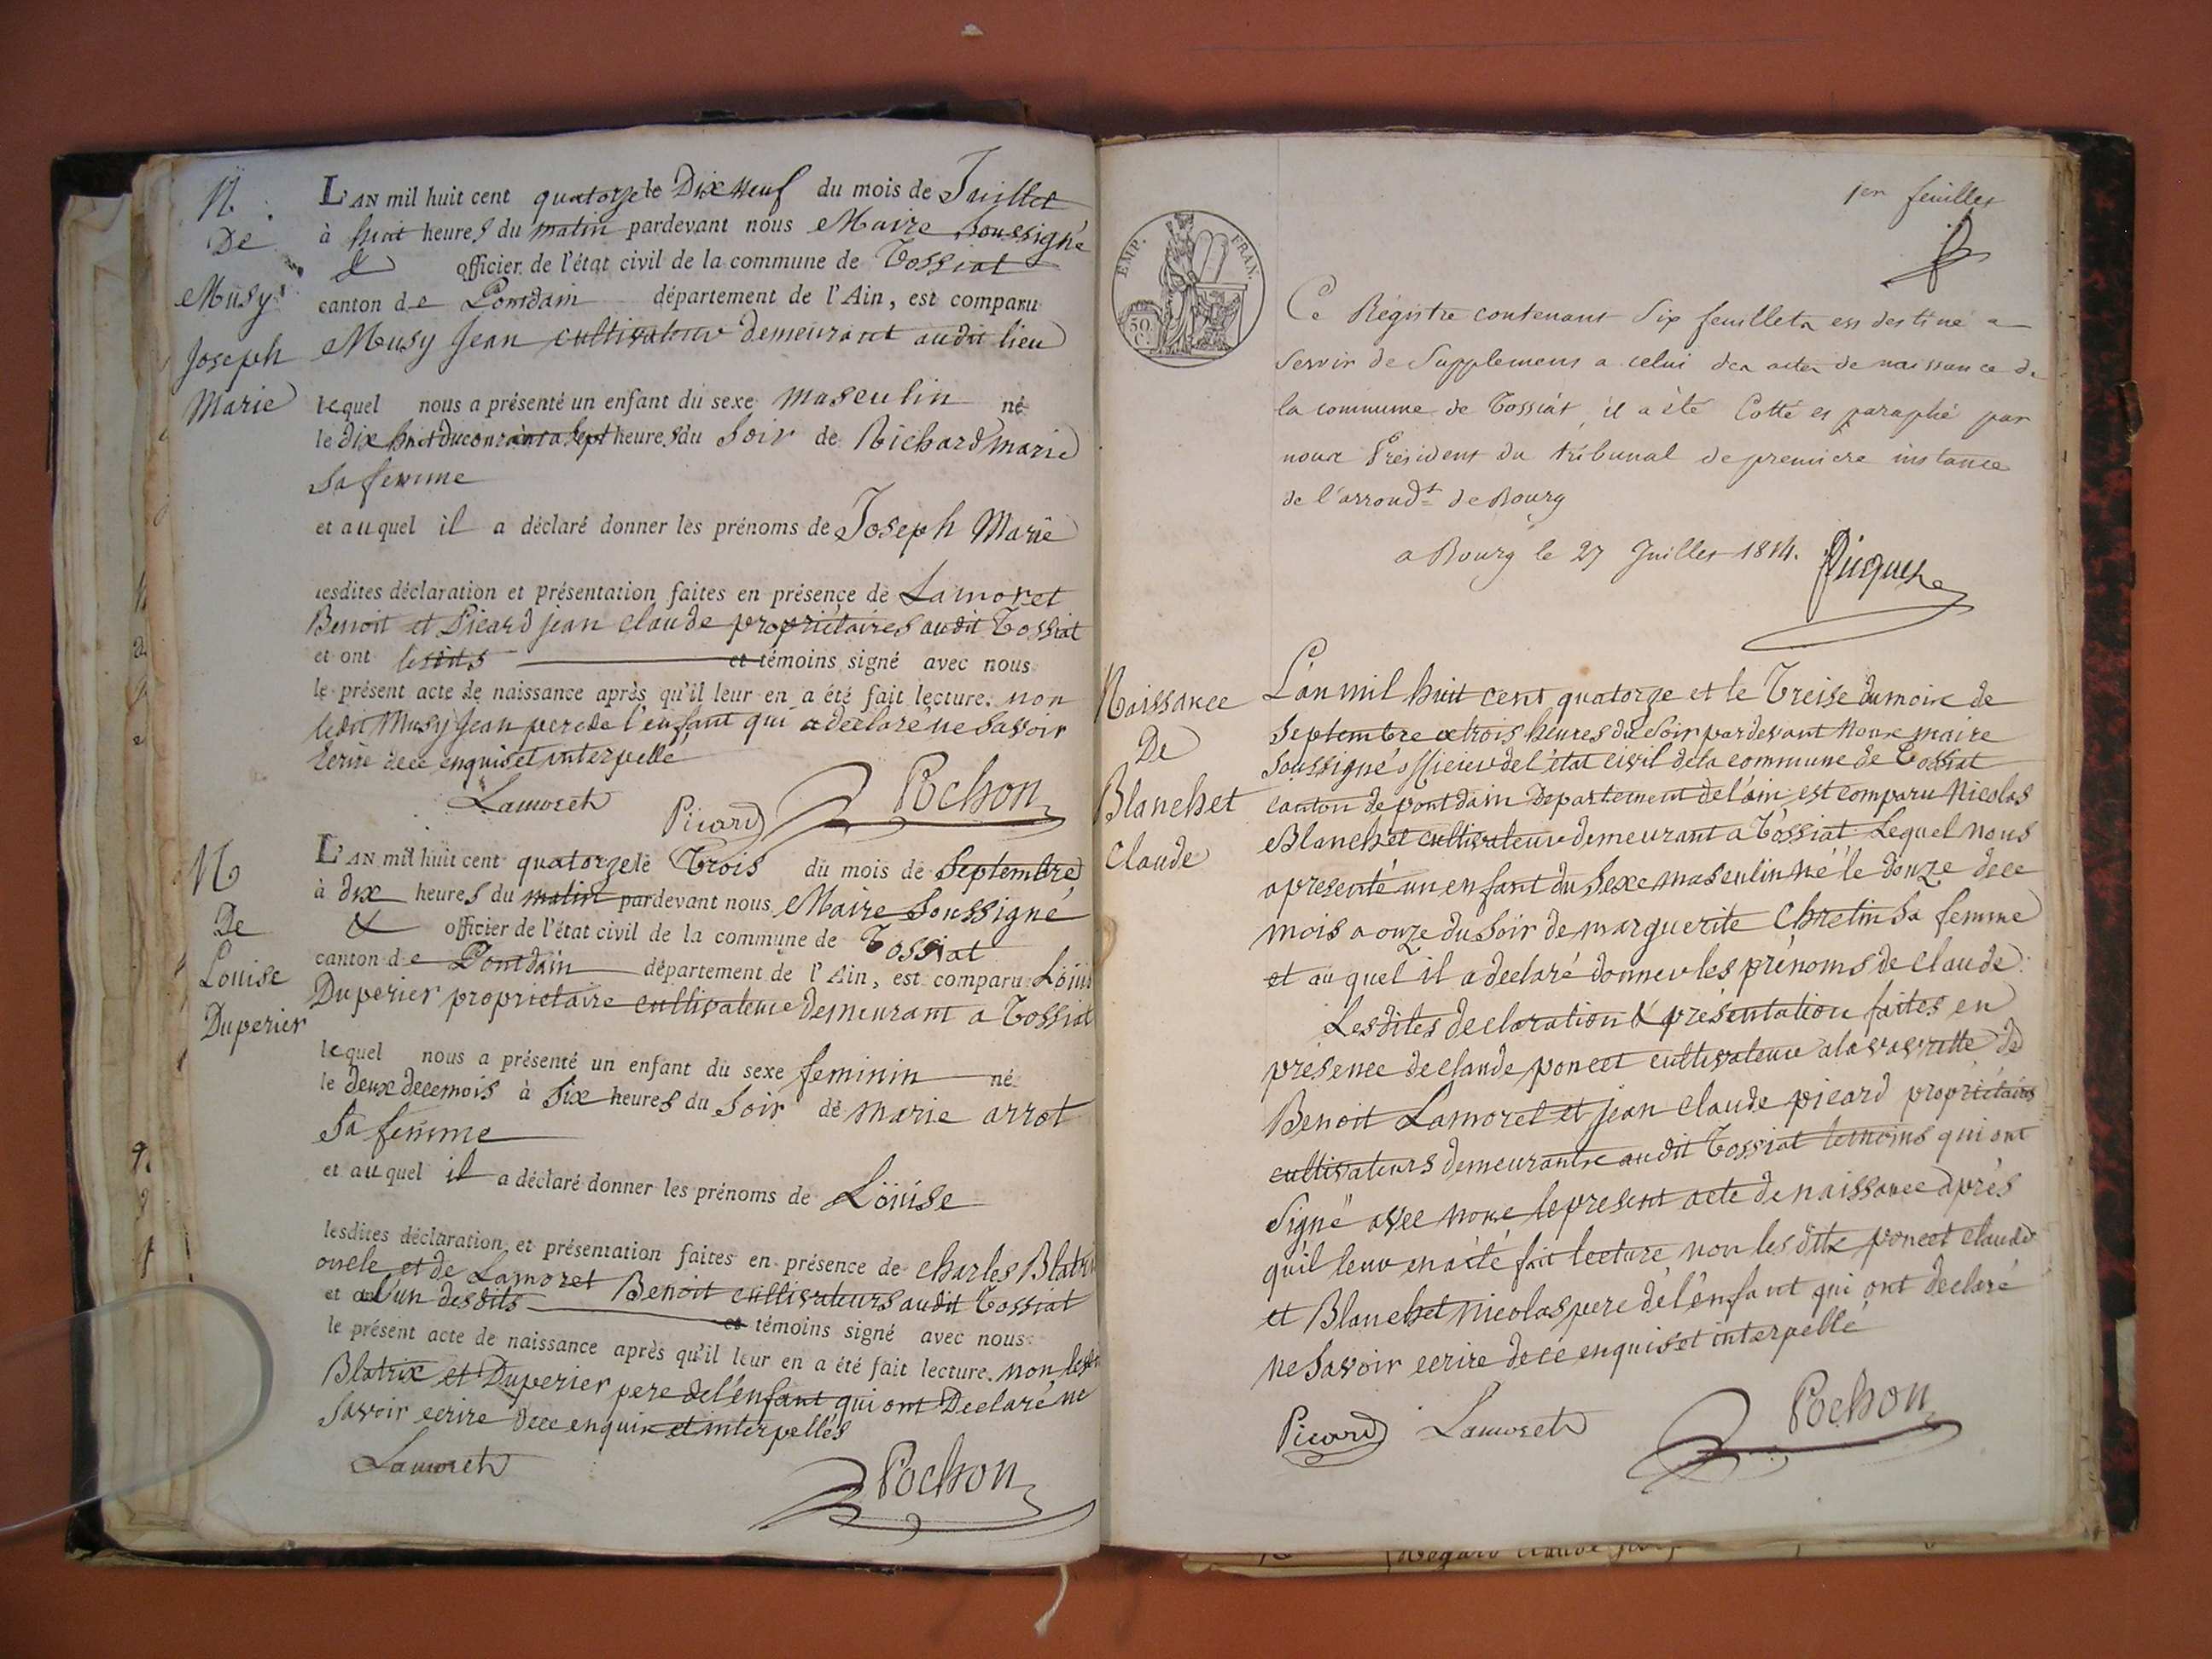 N.
De
Musy
Joseph
Marie
L'AN mil huit cent quatorze le Dix Neuf du mois de Juillet
à huit heures du matin pardevant nous Maire Soussigné
& officier de l'état civil de la commune de Tossiat
canton de Pontdain département de l'Ain, est comparu
Musy Jean cultivateur demeurant audit lieu
lequel nous a présenté un enfant du sexe masculin né
le dix huit du courant a sept heures du Soir de Richard Marie
Sa femme
et auquel il a déclaré donner les prénoms de Joseph Marie
lesdites déclaration et présentation faites en présence de Lamoret
Benoit et Picard jean claude propriétaires audit Tossiat
et ont lesdits et témoins signé avec nous
le présent acte de naissance après qu'il leur en a été fait lecture. non
ledit Musy Jean pere de l'enfant qui a declaré ne Savoir
Ecrire de ce enquis et interpellé
Lamoret Picard Pochon
N
De
Louise
Duperier
L'AN mil huit cent quatorze le Trois du mois de Septembre
à dix heures du matin pardevant nous Maire Soussigné
& officier de l'état civil de la commune de Tossiat
canton de Pontdain département de l'Ain, est comparu Louis
Duperier proprietaire cultivateur demeurant a Tossiat
lequel nous a présenté un enfant du sexe feminin né
le deux de ce mois à Six heures du Soir de marie arrot
Sa femme
et auquel il a déclaré donner les prénoms de Loüise
lesdites déclaration et présentation faites en présence de charles Blatrix
oncle et de Lamoret Benoit cultivateurs audit Tossiat
et a l'un desdits et témoins signé avec nous
le présent acte de naissance après qu'il leur en a été fait lecture. non lesdits
Blatrix et Duperier pere de l'enfant qui ont Declaré ne
Savoir ecrire de ce enquis et interpellés
Lamoret Pochon
1er feuillet
EMP. FRAN.
50 C.
Ce Régistre contenant Six feuillets est destiné a
servir de Supplement a celui des actes de naissance de
la commune de Tossiat, il a été Cotté et paraphé par
nous Président du tribunal de premiere instance
de l'arrondt de Bourg
a Bourg le 27 Juillet 1814. Picquet
Naissance
De
Blanchet
Claude
L'an mil huit cent quatorze et le Treise du mois de
Septembre a trois heures du Soir pardevant Nous maire
Soussigné officier de l'état civil de la commune de Tossiat
canton de pontdain Departement de l'ain est comparu Nicolas
Blanchet cultivateur demeurant a Tossiat Lequel nous
a presenté un enfant du Sexe masculin né le douze de ce
mois a onze du Soir de marguerite Chretin Sa femme
et au quel il a declaré donner les prénoms de claude.
Lesdites declaration & présentation faites en
presence de claude poncet cultivateur a la vavrette de
Benoit Lamoret et jean claude picard propriétaires
cultivateurs demeurants audit Tossiat temoins qui ont
Signé avec nous le present acte de naissance après
quil leur en a été fait lecture, non les dits poncet claude
et Blanchet Nicolas pere de l'enfant qui ont declaré
ne Savoir ecrire de ce enquis et interpellé
Picard Lamoret Pochon